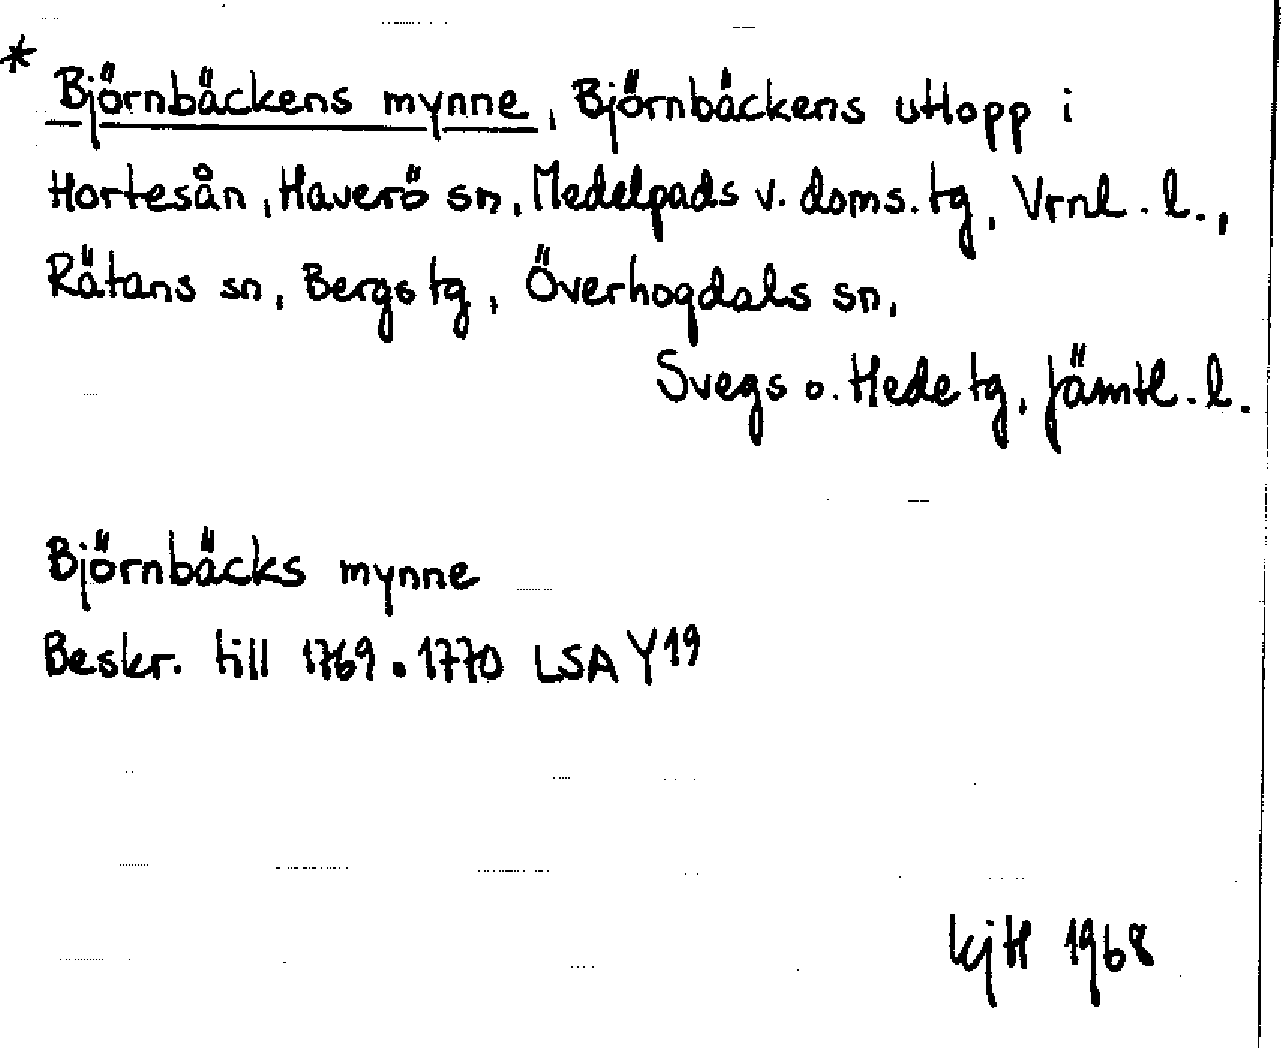 * Björnbäckens mynne, Björnbäckens utlopp i
Hortesån, Haverö sn, Medelpads v. doms. tg, Vrnl. l.,
Rätans sn, Bergs tg, Överhogdals sn,
Svegs o. Hede tg, Jämtl. l.
Björnbäcks mynne
Beskr. till 1769 . 1770 LSA Y19
kjH 1968